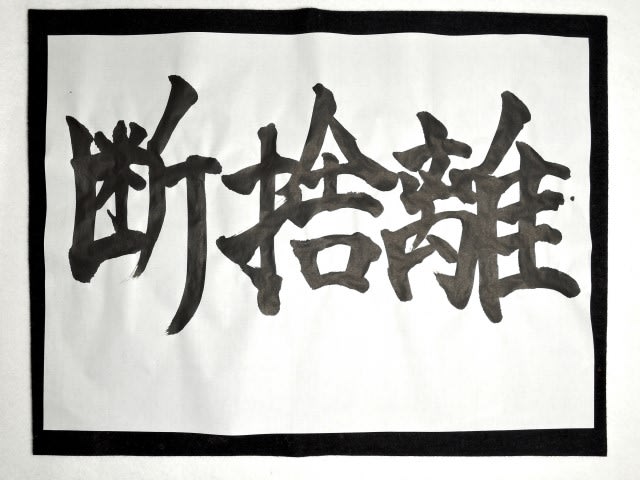 断捨離